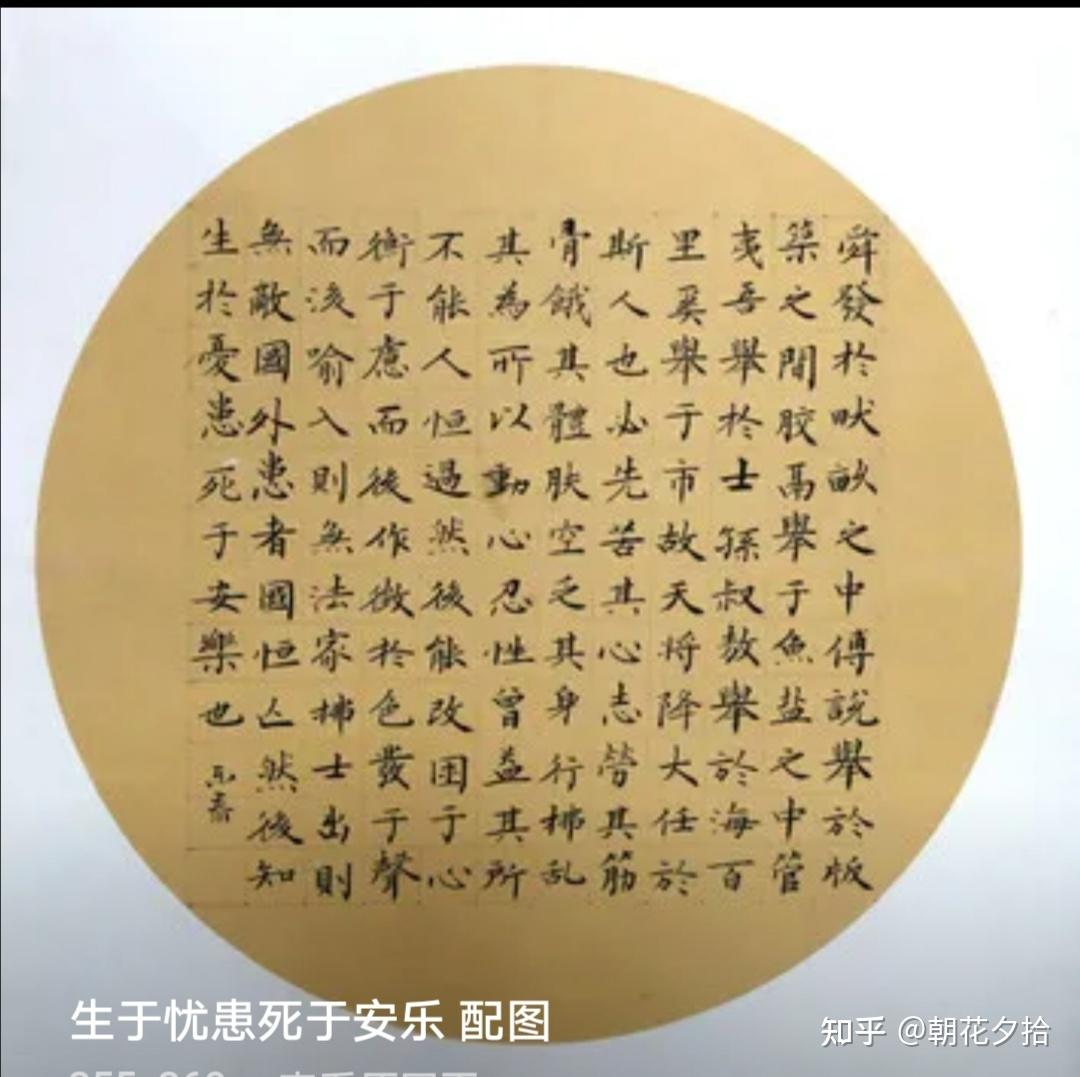 舜發於畎畝之中傅說舉於版
築之間膠鬲舉于魚盐之中管
夷吾舉於士孫叔敖舉於海百
里奚舉于市故天将降大任於
斯人也必先苦其心志勞其筋
骨餓其體肤空乏其身行拂乱
其為所以動心忍性曾益其所
不能人恒過然後能改困于心
衡于慮而後作徵於色發于聲
而後喻入則無法家拂士出則
無敵國外患者國恒亡然後知
生於憂患死于安樂也
生于忧患死于安乐 配图
知乎 @朝花夕拾